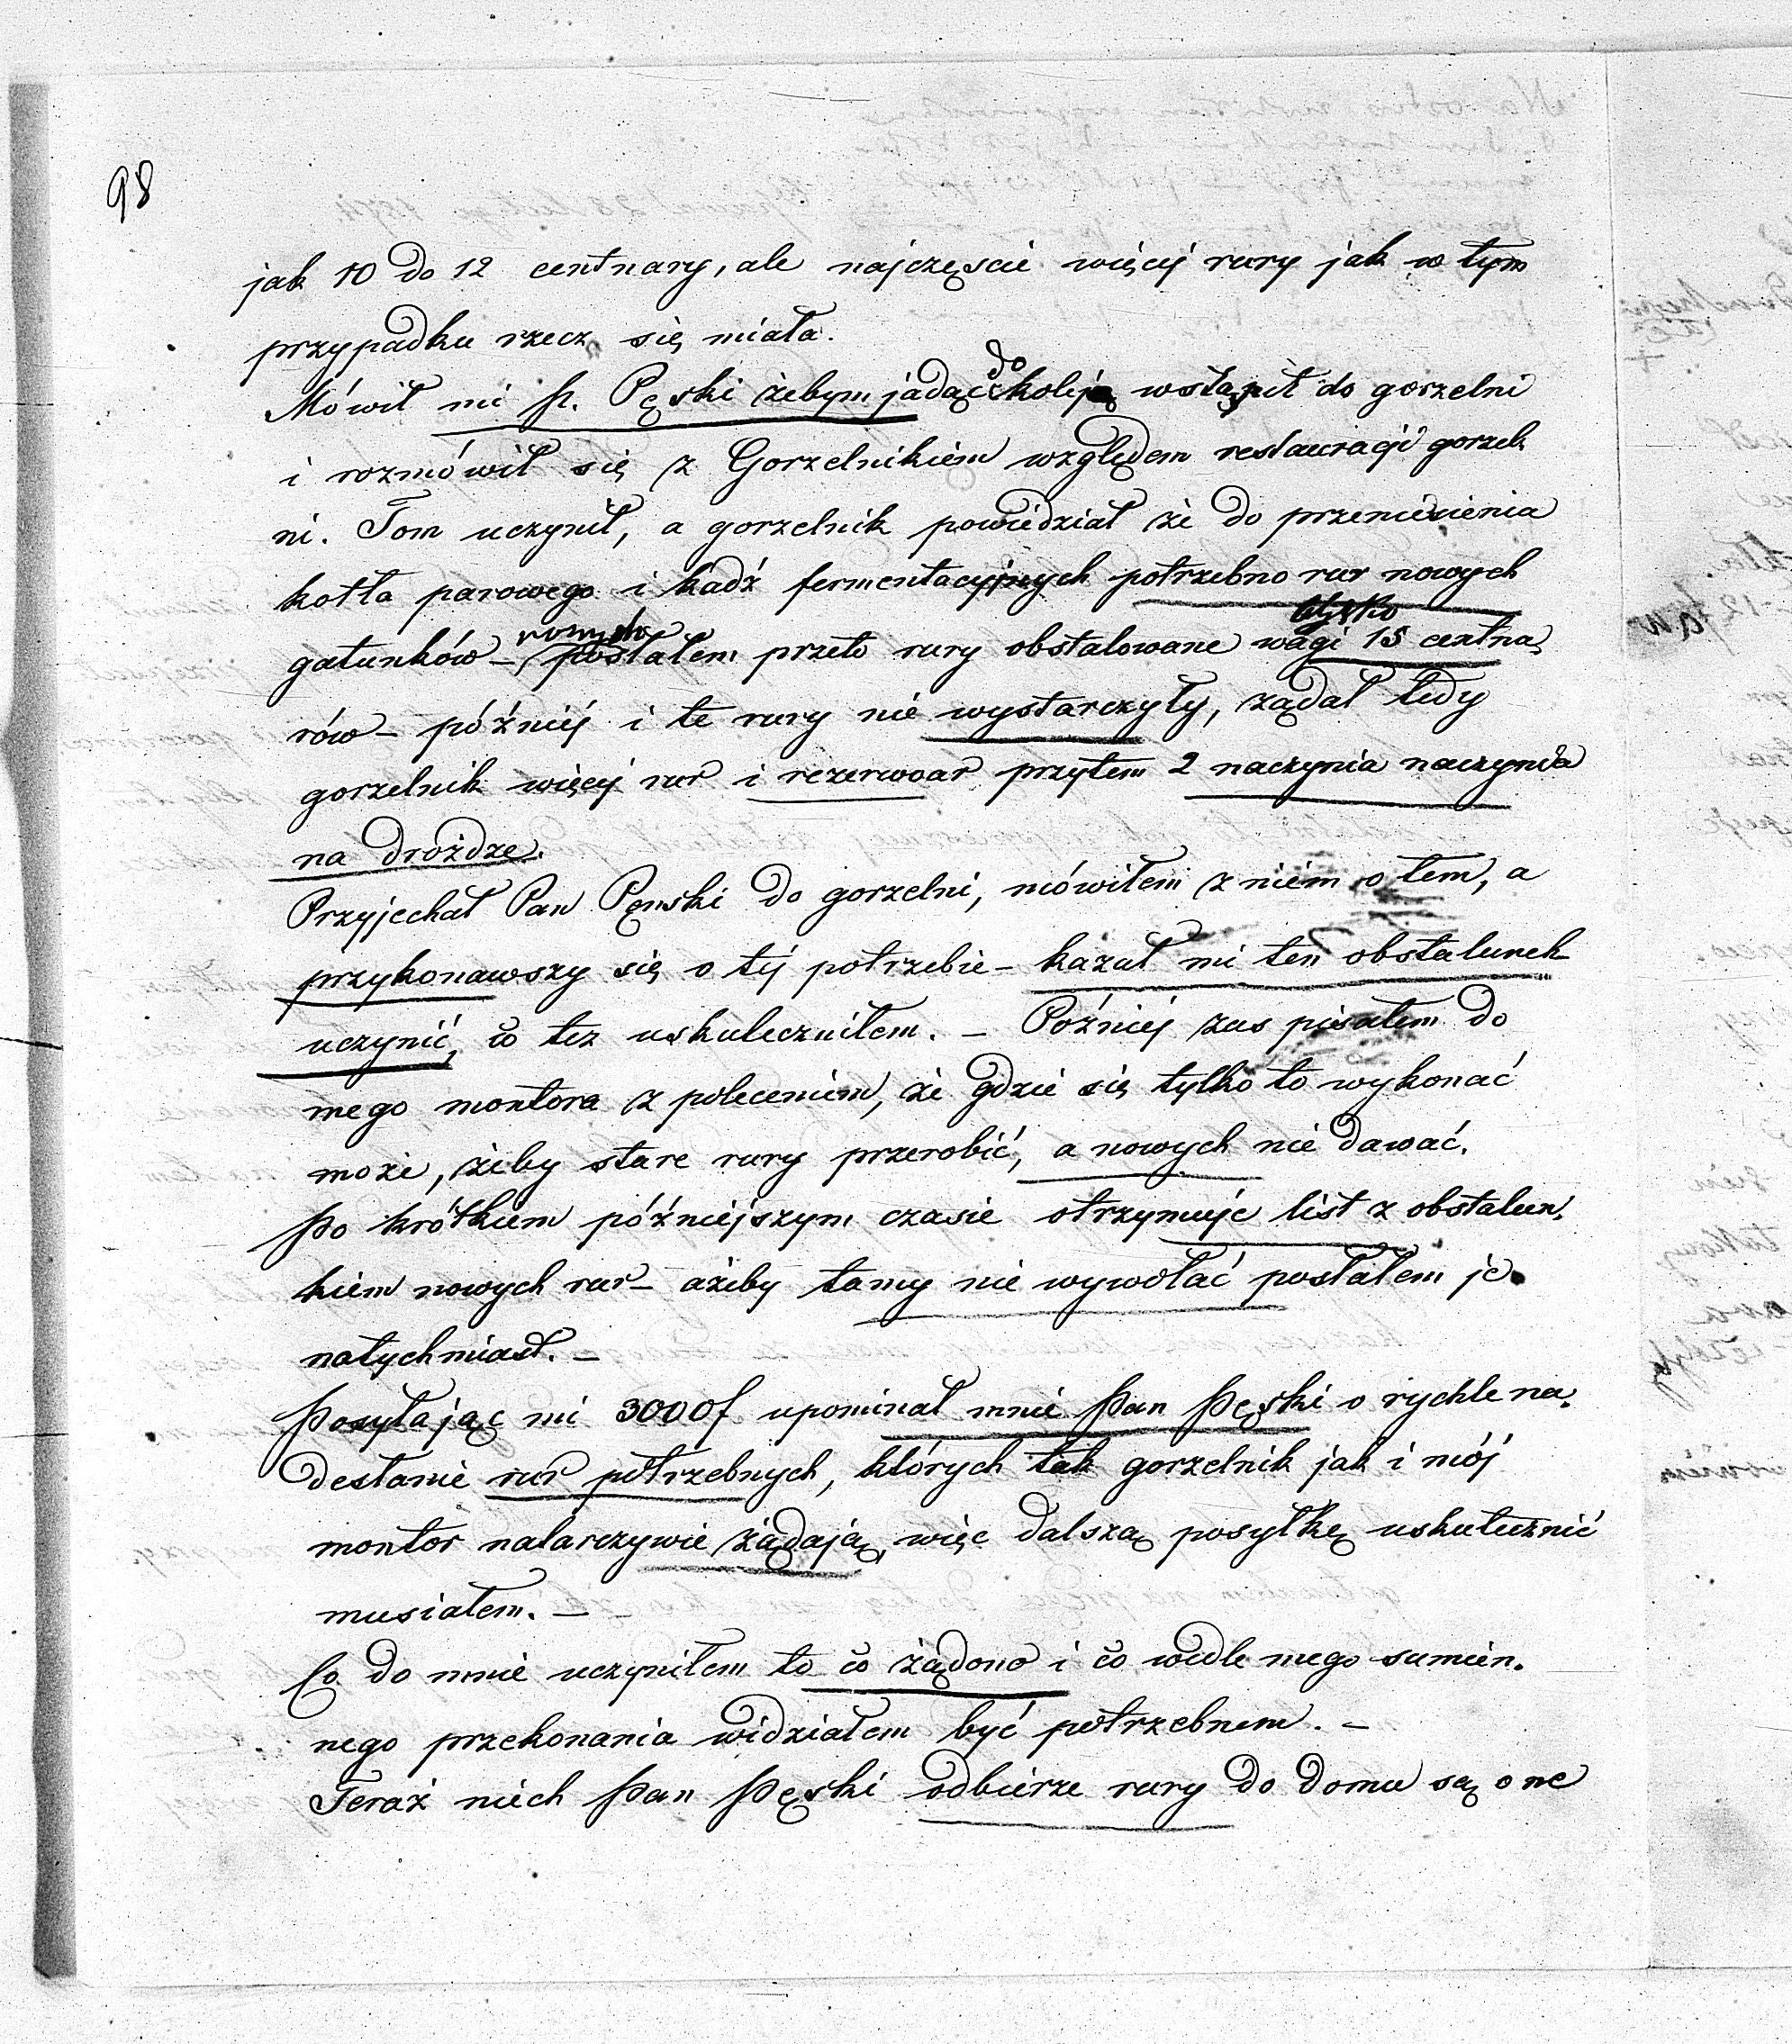 98
jak 10 do 12 centnary, ale najczęscie więcj rury jak w tym
przypadku rzecz się miała.
do
Mówił mi p. Pęski żebym jadąc koleją wstąpił do gorzelni
i rozmówił się z Gorzelnikiem względem restauracji gorzel
ni. Tom uczynił, a gorzelnik powiedział że do przeniesienia
kotła parowego i kadź fermentacyjnych potrzebno rur nowych
tylko
gatunków – posłałem przeto rury obstalowane wagi 15 centna,
rów – późniéj i te rury nie wystarczyły, ządał tedy
gorzelnik więcéj rur i rezerwoar przytem 2 naczynia naczynia
na drożdze.
Przyjechał Pan Pęnski do gorzelni, mówiłem z niem o tem, a
przykonawszy się o téj potrzebie – kazał mi ten obstalunek
uczynić, co tez uskuteczniłem. – Poźniéj zas pisałem do
mego montora z poleceniem, że gdzie się tylko to wykonać
może, żeby stare rury przerobić, a nowych nie dawać.
Po krótkiem późniejszym czasie otrzymuję list z obstalun,
kiem nowych rur – ażeby tamy nie wywołać posłałem je
natychmiast. –
Posyłając mi 3000f upominał mnie Pan Pęski o rychle na,
desłanie rur potrzebnych, których tak gorzelnik jak i mój
montor natarczywie żądają, więc dalszą posyłkę uskutecznić
musiałem. –
Co do mnie uczyniłem to co żądono i co wedle mego sumien.
nego przekonania widziałem być potrzebnem. –
Teraż niech Pan Pęski odbierze rury do domu są one